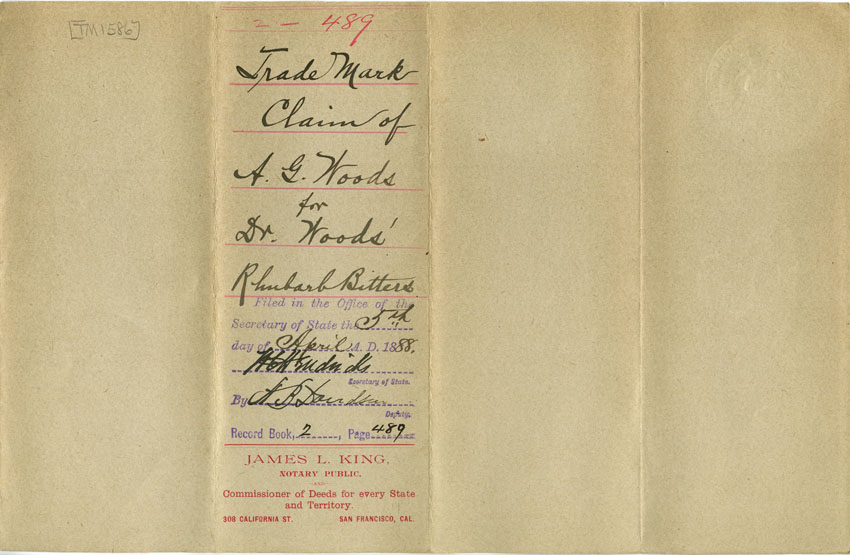 [TM1586]
2 - 489
Trade Mark
Claim of
A. G. Woods
for
Dr. Woods'
Rhubarb Bitters
Filed in the Office of the
Secretary of State the 5th
day of April A. D. 1888.
W C Hendricks
Secretary of State.
By
Deputy.
Record Book, 2, Page 489
JAMES L. KING,
NOTARY PUBLIC,
AND
Commissioner of Deeds for every State
and Territory.
308 CALIFORNIA ST. SAN FRANCISCO, CAL.